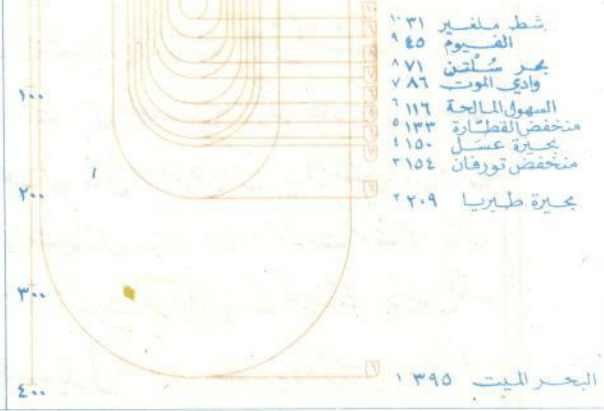 شط ملغير ٣١ ١٠
الفيوم ٤٥ ٩
بحر سُلْتن ٧١ ٨
وادي الموت ٨٦ ٧
السهول المالحة ١١٦ ٦
منخفض القطّارة ١٣٣ ٥
بحيرة عسَل ١٥٠ ٤
منخفض تورفان ١٥٤ ٣
بحيرة طبريا ٢٠٩ ٢
البحر الميت ٣٩٥ ١
١٠٠
٢٠٠
٣٠٠
٤٠٠